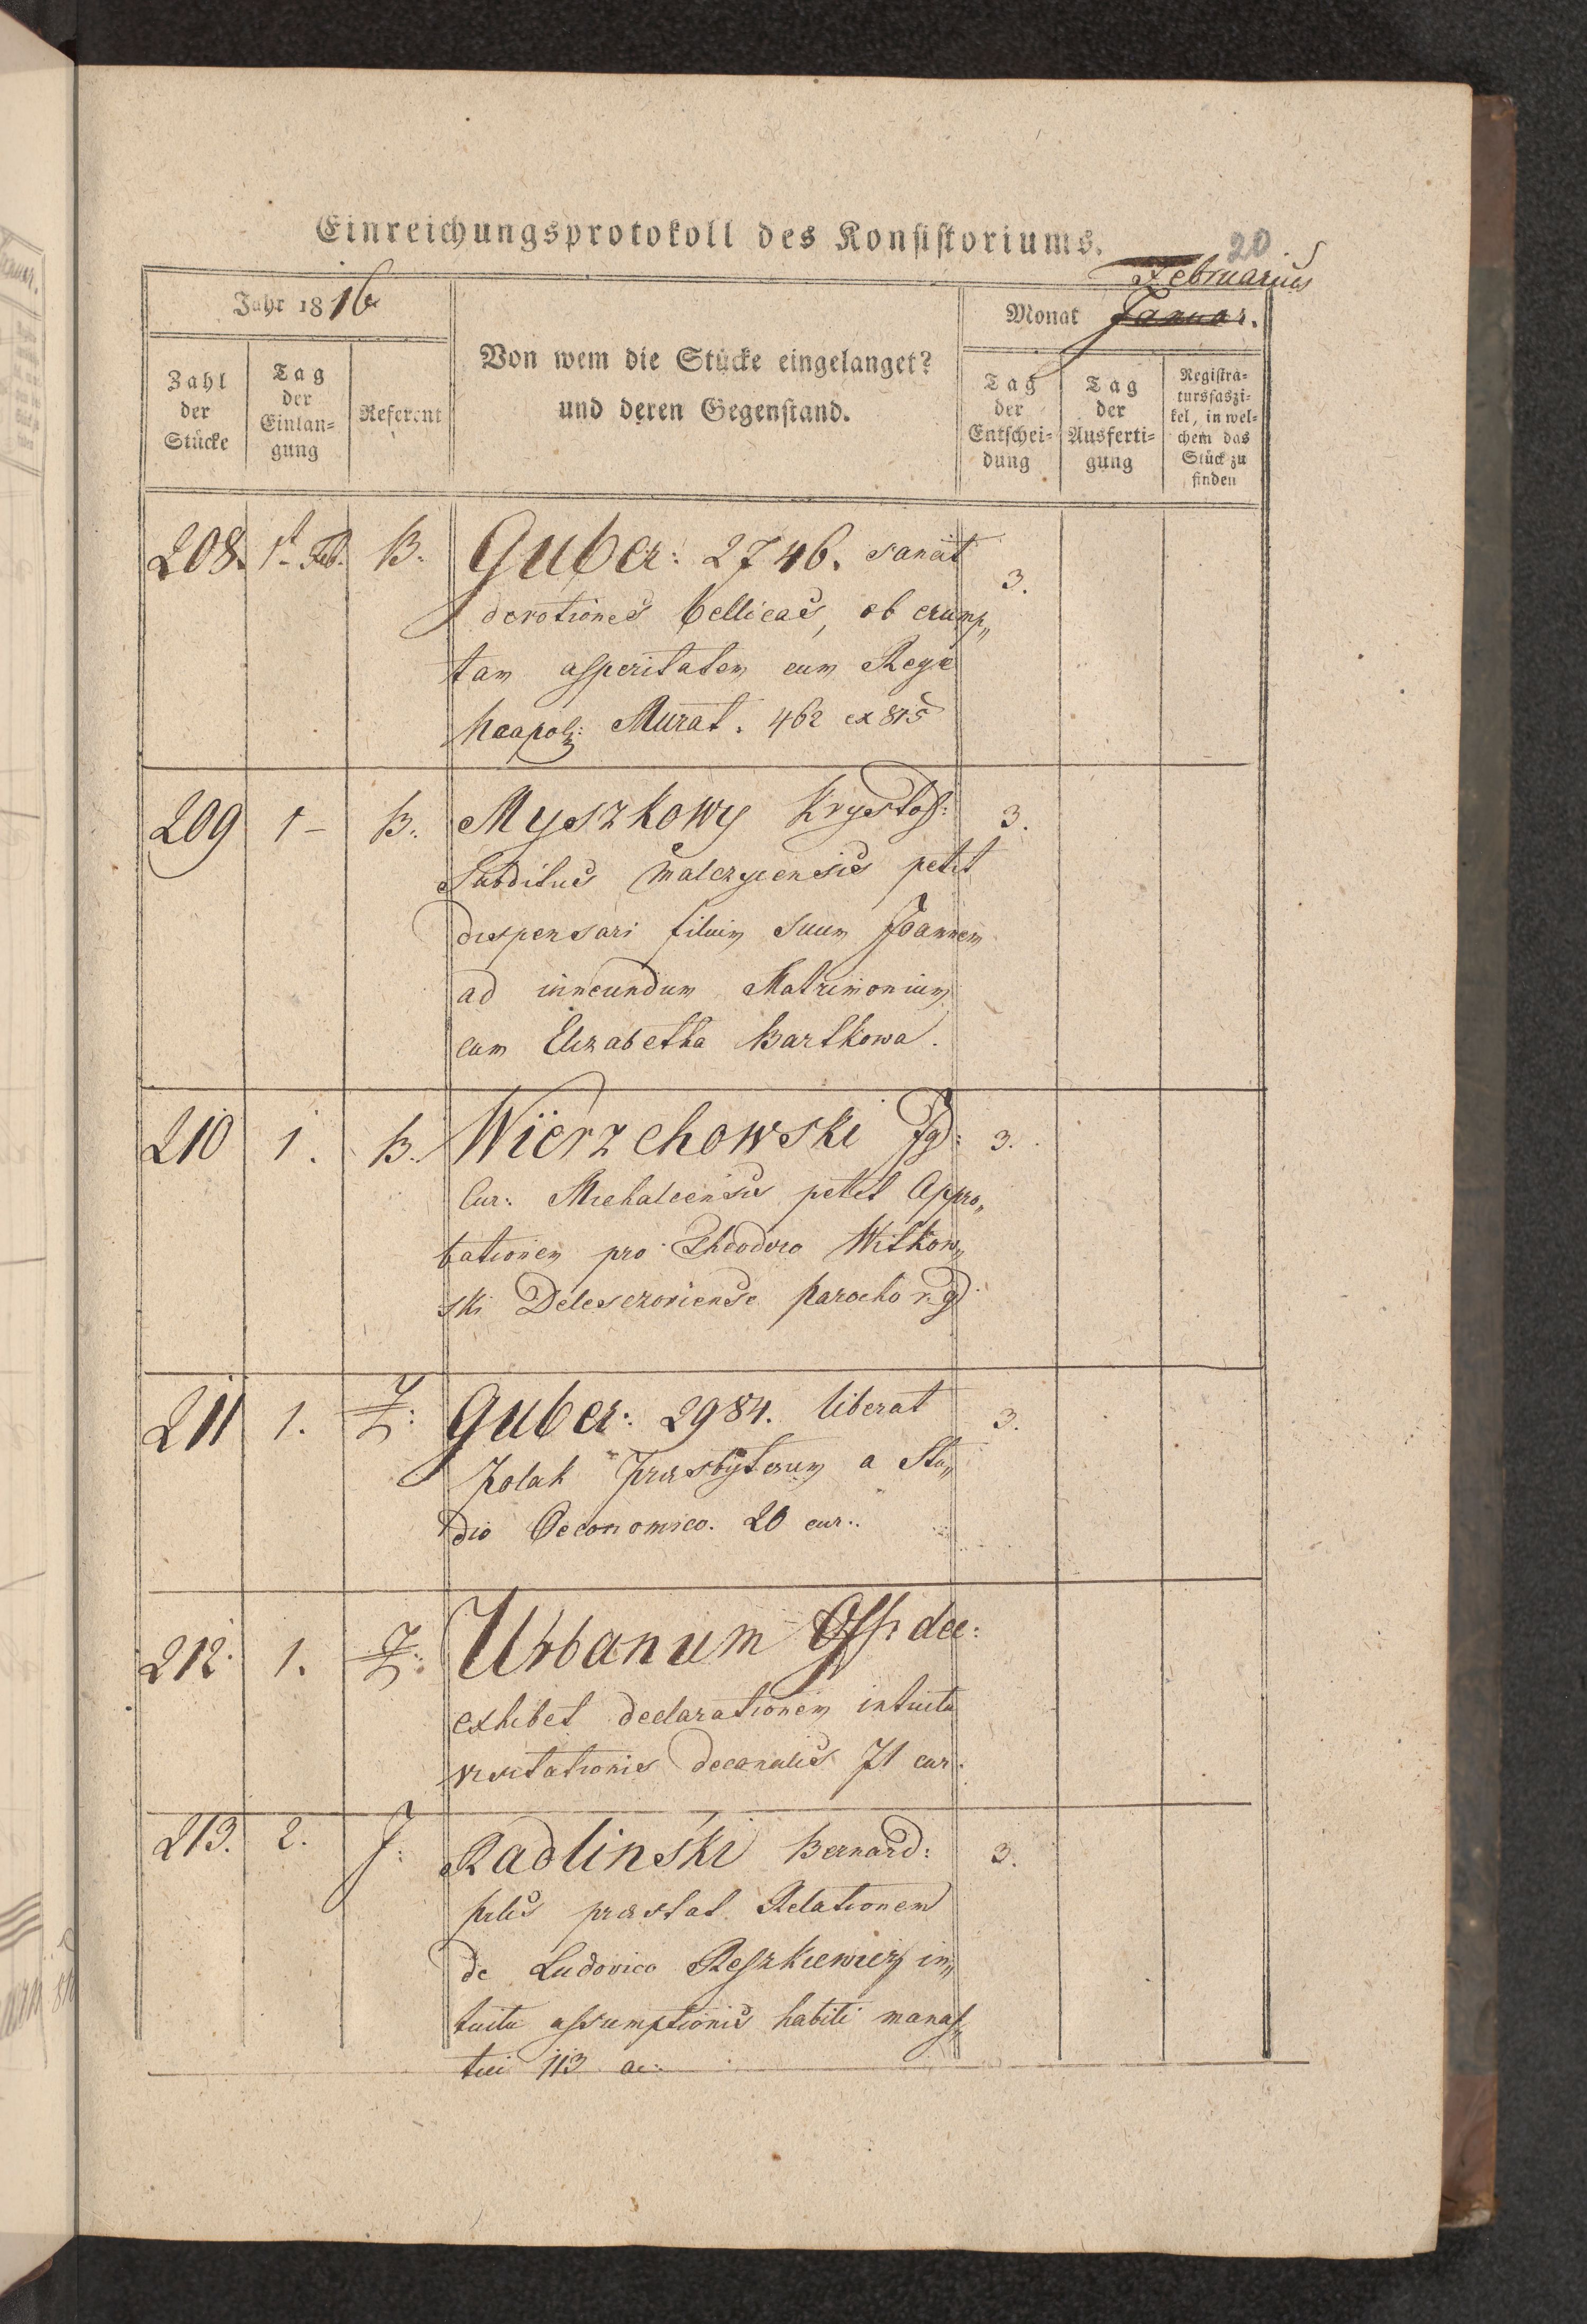 20
Einreichungsprotokoll des Konsistoriums.
Februarius
Jahr 1816
Monat Januar.
Von wem die Stücke eingelanget?
und deren Gegenstand.
Zahl der Stücke
Tag der Einlan=gung
Referent
Tag der Entschei=dung
Tag der Ausferti=gung
Registra=tursfaszi=kel, in wel=chem das Stück zu finden
208. 1- Feb. B. Guber: 2746. sanat 3.
devotiones bellicas, ob erump„
tam asperitatem cum Rege
Neapol: Murat. 462 ex 815
209 1- B. Myszkowy Krystof: 3.
Subditus Malczycensis petit
dispensari filium suum Joannem
ad ineundum Matrimonium
cum Elizabetha Bartkowa.
210 1. B. Wierzchowski Ig: 3.
Cur: Michalcensis petit Appro„
bationem pro Theodoro Witkow„
ski Deleszoviense Parocho r. g.
211 1. Z: Guber: 2984. liberat 3.
Polak Presbyterum a Stu„
dio Oeconomico. 20 cur:
212. 1. Z: Urbanum Off: dec:
exhibet declarationem intuitu
visitationis decanalis 71 cur:
213. 2. J: Radlinski Bernard: 3.
praestat Relationem
de Ludovico Reszkiewicz in„
tuitu assumptionis habiti monas„
tici 113 ac: